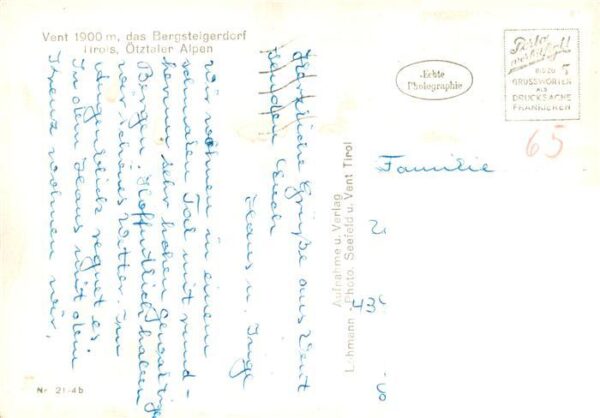 Vent 1900 m, das Bergsteigerdorf
Tirols, Ötztaler Alpen
Herzliche Grüße aus Vent
senden Euch
Hans u. Inge
Wir wohnen in einem
schmalen Tal mit rund-
herum sehr hohen gewaltigen
Bergen. Hoffentlich haben
wir schönes Wetter. Im
Augenblick regnet es.
In dem Haus mit dem
Kreuz wohnen wir.
Nr. 21-4b
Aufnahme u. Verlag
Lohmann - Photo. Seefeld u. Vent Tirol
Echte
Photographie
Porto
BIS ZU 5
GRUSSWORTEN
ALS
DRUCKSACHE
FRANKIEREN
65
Familie
43